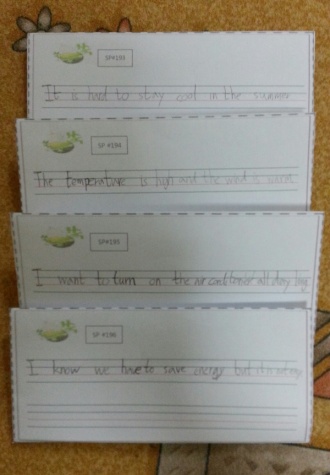 SP#193
It is hard to stay cool in the summer
SP #194
The temperature is high and the wind is weak
SP#195
I want to turn on the air conditioner all day long
SP #196
I know we have to save energy but it's not easy